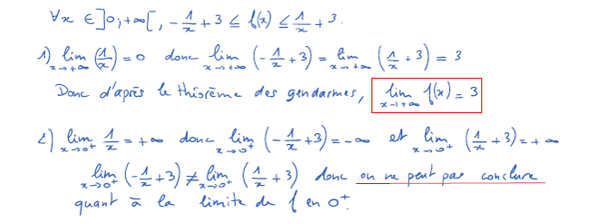 ∀x ∈ ]0;+∞[, -1/x + 3 ≤ f(x) ≤ 1/x + 3.
1) lim x→+∞ (1/x) = 0 donc lim x→+∞ (-1/x + 3) = lim x→+∞ (1/x + 3) = 3
Donc d'après le théorème des gendarmes, lim x→+∞ f(x) = 3
2) lim x→0⁺ 1/x = +∞ donc lim x→0⁺ (-1/x + 3) = -∞ et lim x→0⁺ (1/x + 3) = +∞
lim x→0⁺ (-1/x + 3) ≠ lim x→0⁺ (1/x + 3) donc on ne peut pas conclure
quant à la limite de f en 0⁺.